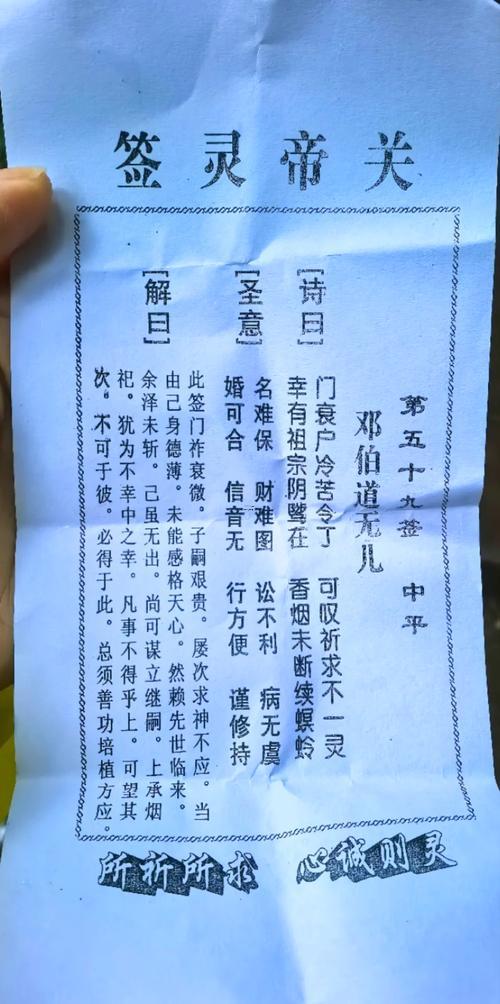 关帝灵签
第五十九签 中平
邓伯道无儿
[诗曰]
门衰户冷苦令丁 可叹祈求不一灵
幸有祖宗阴骘在 香烟未断续螟蛉
[圣意]
名难保 财难图 讼不利 病无虞
婚可合 信音无 行方便 谨修持
[解曰]
此签门祚衰微。子嗣艰贵。屡次求神不应。当
由己身德薄。未能感格天心。然赖先世临来。
余泽未斩。己虽无出。尚可谋立继嗣。上承烟
祀。犹为不幸中之幸。凡事不得乎上。可望其
次。不可于彼。必得于此。总须善功培植方应。
所祈所求 心诚则灵